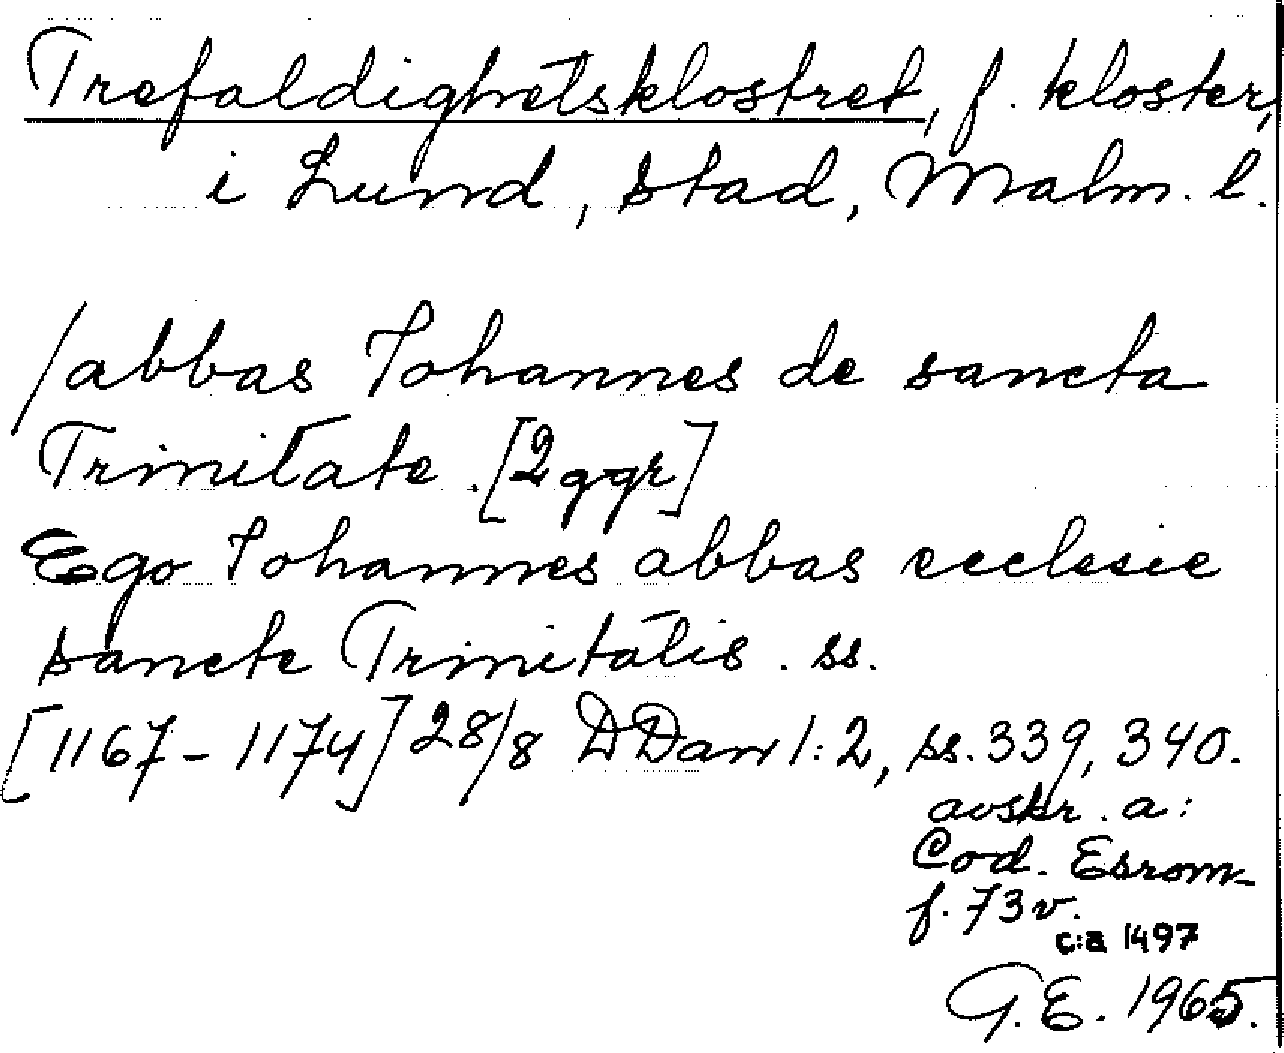 Trefaldighetsklostret, f. kloster,
i Lund, stad, Malm. l.
/abbas Johannes de sancta
Trinitate. [2 ggr]
Ego Johannes abbas ecclesie
sancte Trinitatis. ss.
[1167-1174] 28/8 DDan 1:2, ss. 339, 340.
avskr. a:
Cod. Esrom-
f. 73 v.
c:a 1497
G.E. 1965.